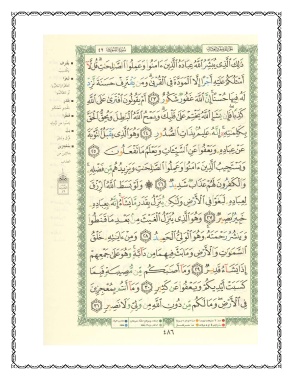 ذَٰلِكَ ٱلَّذِى يُبَشِّرُ ٱللَّهُ عِبَادَهُ ٱلَّذِينَ ءَامَنُوا۟ وَعَمِلُوا۟ ٱلصَّٰلِحَٰتِ قُل لَّآ
أَسْـَٔلُكُمْ عَلَيْهِ أَجْرًا إِلَّا ٱلْمَوَدَّةَ فِى ٱلْقُرْبَىٰ وَمَن يَقْتَرِفْ حَسَنَةً نَّزِدْ
لَهُۥ فِيهَا حُسْنًا إِنَّ ٱللَّهَ غَفُورٌ شَكُورٌ ٢٣ أَمْ يَقُولُونَ ٱفْتَرَىٰ عَلَى ٱللَّهِ
كَذِبًا فَإِن يَشَإِ ٱللَّهُ يَخْتِمْ عَلَىٰ قَلْبِكَ وَيَمْحُ ٱللَّهُ ٱلْبَٰطِلَ وَيُحِقُّ ٱلْحَقَّ
بِكَلِمَٰتِهِۦٓ إِنَّهُۥ عَلِيمٌۢ بِذَاتِ ٱلصُّدُورِ ٢٤ وَهُوَ ٱلَّذِى يَقْبَلُ ٱلتَّوْبَةَ
عَنْ عِبَادِهِۦ وَيَعْفُوا۟ عَنِ ٱلسَّيِّـَٔاتِ وَيَعْلَمُ مَا تَفْعَلُونَ ٢٥
وَيَسْتَجِيبُ ٱلَّذِينَ ءَامَنُوا۟ وَعَمِلُوا۟ ٱلصَّٰلِحَٰتِ وَيَزِيدُهُم مِّن فَضْلِهِۦ
وَٱلْكَٰفِرُونَ لَهُمْ عَذَابٌ شَدِيدٌ ٢٦ وَلَوْ بَسَطَ ٱللَّهُ ٱلرِّزْقَ
لِعِبَادِهِۦ لَبَغَوْا۟ فِى ٱلْأَرْضِ وَلَٰكِن يُنَزِّلُ بِقَدَرٍ مَّا يَشَآءُ إِنَّهُۥ بِعِبَادِهِۦ
خَبِيرٌۢ بَصِيرٌ ٢٧ وَهُوَ ٱلَّذِى يُنَزِّلُ ٱلْغَيْثَ مِنۢ بَعْدِ مَا قَنَطُوا۟
وَيَنشُرُ رَحْمَتَهُۥ وَهُوَ ٱلْوَلِىُّ ٱلْحَمِيدُ ٢٨ وَمِنْ ءَايَٰتِهِۦ خَلْقُ
ٱلسَّمَٰوَٰتِ وَٱلْأَرْضِ وَمَا بَثَّ فِيهِمَا مِن دَآبَّةٍ وَهُوَ عَلَىٰ جَمْعِهِمْ
إِذَا يَشَآءُ قَدِيرٌ ٢٩ وَمَآ أَصَٰبَكُم مِّن مُّصِيبَةٍ فَبِمَا
كَسَبَتْ أَيْدِيكُمْ وَيَعْفُوا۟ عَن كَثِيرٍ ٣٠ وَمَآ أَنتُم بِمُعْجِزِينَ
فِى ٱلْأَرْضِ وَمَا لَكُم مِّن دُونِ ٱللَّهِ مِن وَلِىٍّ وَلَا نَصِيرٍ ٣١
٤٨٦